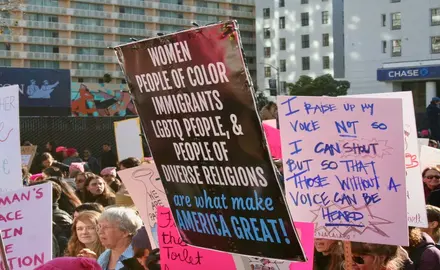 WOMEN
PEOPLE OF COLOR
IMMIGRANTS
LGBTQ PEOPLE, &
PEOPLE OF
DIVERSE RELIGIONS
are what make
AMERICA GREAT!
I RAISE UP MY
VOICE NOT SO
I CAN SHOUT
BUT SO THAT
THOSE WITHOUT
A VOICE CAN BE
HEARD
CHASE
IN THE